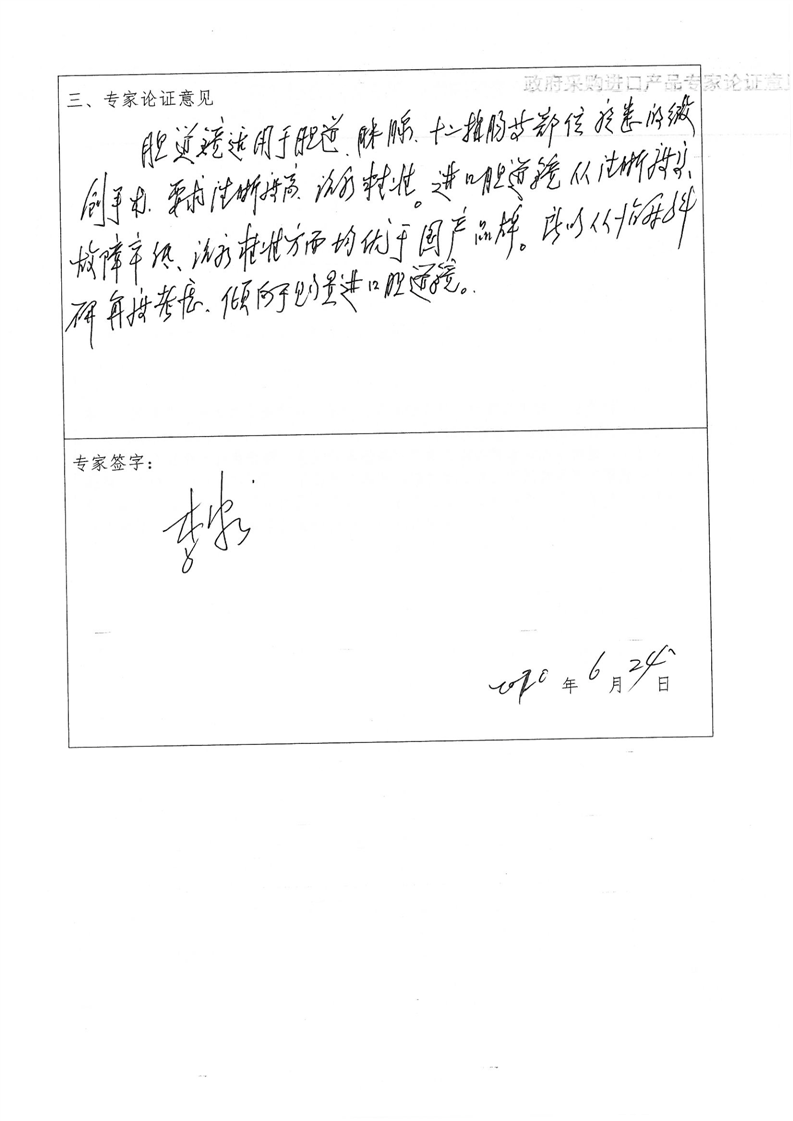 政府采购进口产品专家论证意见
三、专家论证意见
胆道镜适用于胆道、胰腺、十二指肠等部位疾患的微
创手术，要求清晰度高，设备稳定性。进口胆道镜从清晰度高、
故障率低、设备稳定性方面均优于国产品牌。所以从临床科
研角度考虑，倾向于购置进口胆道镜。
专家签字：
李
2020年6月24日